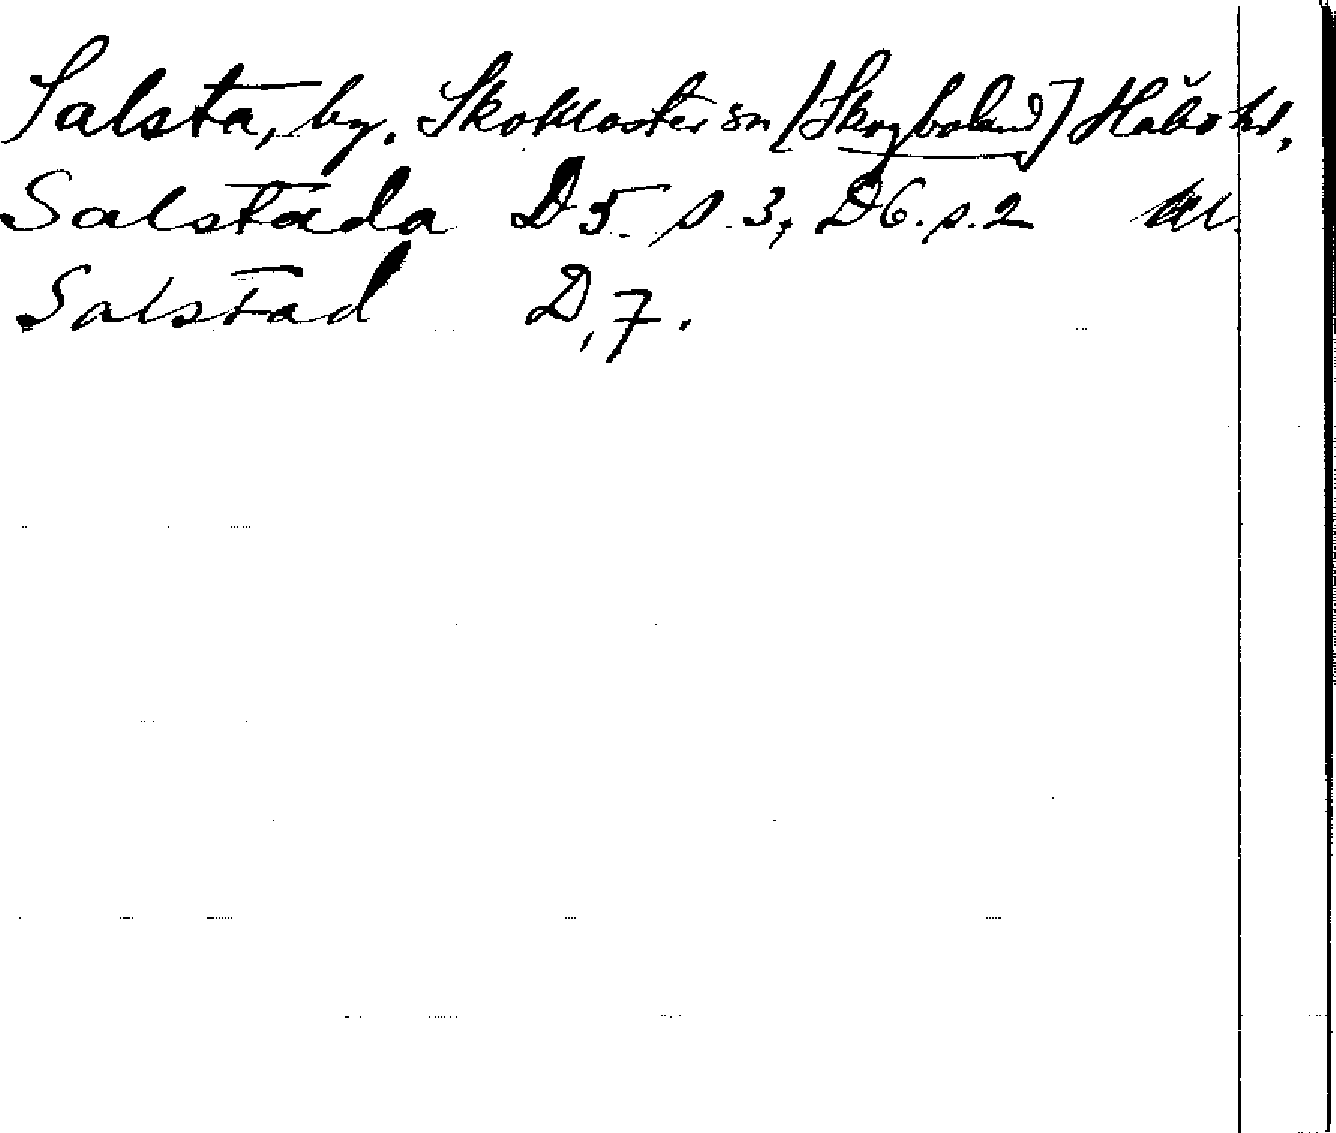 Salsta, by. Skokloster sn [Skogboland] Håbo hd.
Salstada D5 s. 3, D6. s. 2 Ul.
Salstad D, 7.